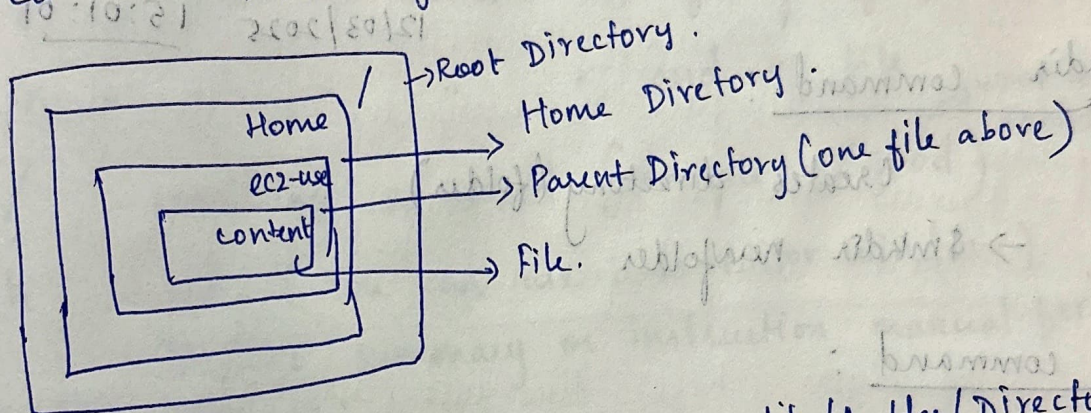 / → Root Directory.
Home → Home Diretory.
ec2-use → Parent Directory (one file above)
content → File.
/ Directo